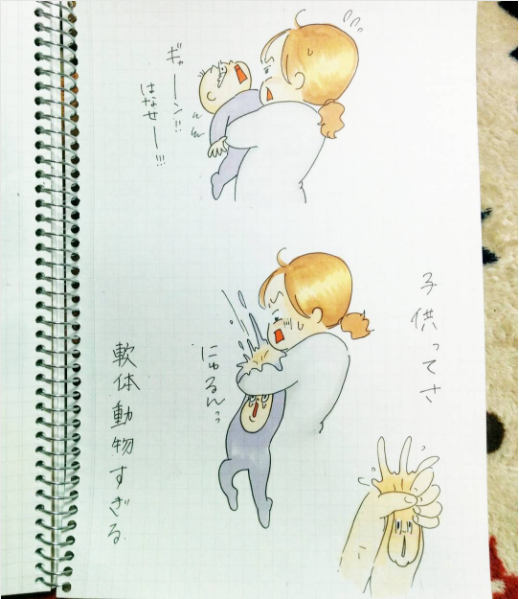 ギャーン!!
はなせー!!!
子供ってさ
にゅるんっ
軟体動物すぎる